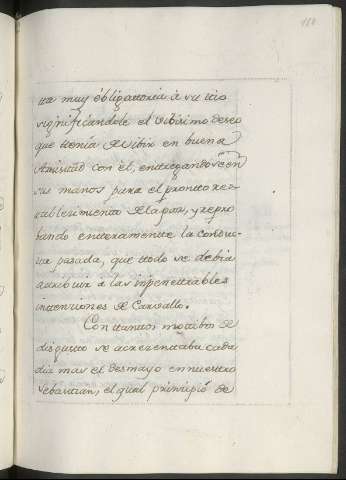 ta muy obligattoria â su ttio
significandole el vibisimo deseo
que ttenia de vibir en buena
Amistad con èl, enttregandose en
sus manos para el prontto res
tablesimiento de la paz, y repro
bando entteramentte la conduc
ta pasada, que ttodo se debia
attribuir a las inpenettrables
inttenziones de Carvallo.
Con ttanttos mottibos de
disgustto se acrezenttaba cada
dia mas el desmayo en nuesttro
Sebasttian, el qual prinzipió de